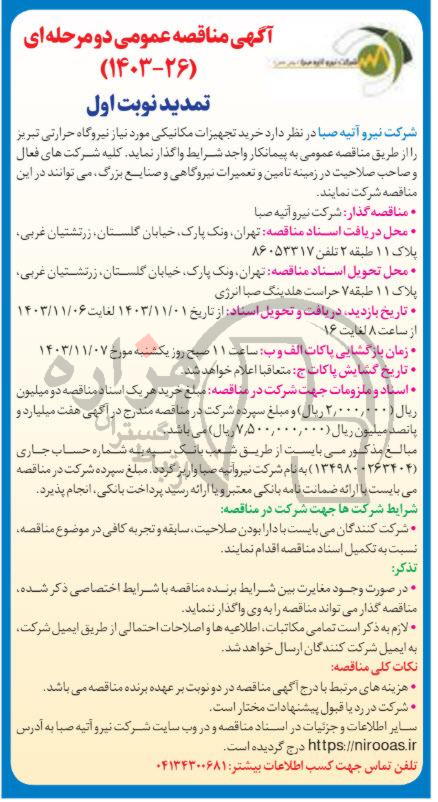 شرکت نیرو آتیه صبا (سهامی خاص)
آگهی مناقصه عمومی دو مرحله ای
(۱۴۰۳-۲۶)
تمدید نوبت اول
شرکت نیرو آتیه صبا در نظر دارد خرید تجهیزات مکانیکی مورد نیاز نیروگاه حرارتی تبریز
را از طریق مناقصه عمومی به پیمانکار واجد شرایط واگذار نماید. کلیه شرکت های فعال
و صاحب صلاحیت در زمینه تامین و تعمیرات نیروگاهی و صنایع بزرگ، می توانند در این
مناقصه شرکت نمایند.
• مناقصه گذار: شرکت نیرو آتیه صبا
• محل دریافت اسناد مناقصه: تهران، ونک پارک، خیابان گلستان، زرتشتیان غربی،
پلاک ۱۱ طبقه ۲ تلفن ۸۶۰۵۳۳۱۷
• محل تحویل اسناد مناقصه: تهران، ونک پارک، خیابان گلستان، زرتشتیان غربی،
پلاک ۱۱ طبقه ۷ حراست هلدینگ صبا انرژی
• تاریخ بازدید، دریافت و تحویل اسناد: از تاریخ ۱۴۰۳/۱۱/۰۱ لغایت ۱۴۰۳/۱۱/۰۶
از ساعت ۸ لغایت ۱۶
• زمان بازگشایی پاکات الف و ب: ساعت ۱۱ صبح روز یکشنبه مورخ ۱۴۰۳/۱۱/۰۷
• تاریخ گشایش پاکات ج: متعاقبا اعلام خواهد شد.
• اسناد و ملزومات جهت شرکت در مناقصه: مبلغ خرید هر یک اسناد مناقصه دو میلیون
ریال (۲,۰۰۰,۰۰۰ ریال) و مبلغ سپرده شرکت در مناقصه مندرج در آگهی هفت میلیارد و
پانصد میلیون ریال (۷,۵۰۰,۰۰۰,۰۰۰ ریال) می باشد.
مبالغ مذکور می بایست از طریق شعب بانک سپه به شماره حساب جاری
(۱۳۴۹۸۰۰۲۶۳۴۰۴) به نام شرکت نیرو آتیه صبا واریز گردد. مبلغ سپرده شرکت در مناقصه
می بایست با ارائه ضمانت نامه بانکی معتبر و یا ارائه رسید پرداخت بانکی، انجام پذیرد.
شرایط شرکت ها جهت شرکت در مناقصه:
• شرکت کنندگان می بایست با دارا بودن صلاحیت، سابقه و تجربه کافی در موضوع مناقصه،
نسبت به تکمیل اسناد مناقصه اقدام نمایند.
تذکر:
• در صورت وجود مغایرت بین شرایط برنده مناقصه با شرایط اختصاصی ذکر شده،
مناقصه گذار می تواند مناقصه را به وی واگذار ننماید.
• لازم به ذکر است تمامی مکاتبات، اطلاعیه ها و اصلاحات احتمالی از طریق ایمیل شرکت،
به ایمیل شرکت کنندگان ارسال خواهد شد.
نکات کلی مناقصه:
• هزینه های مرتبط با درج آگهی مناقصه در دو نوبت بر عهده برنده مناقصه می باشد.
• شرکت در رد یا قبول پیشنهادات مختار است.
سایر اطلاعات و جزئیات در اسناد مناقصه و در وب سایت شرکت نیرو آتیه صبا به آدرس
https://nirooas.ir درج گردیده است.
تلفن تماس جهت کسب اطلاعات بیشتر: ۰۴۱۳۴۳۰۰۶۸۱